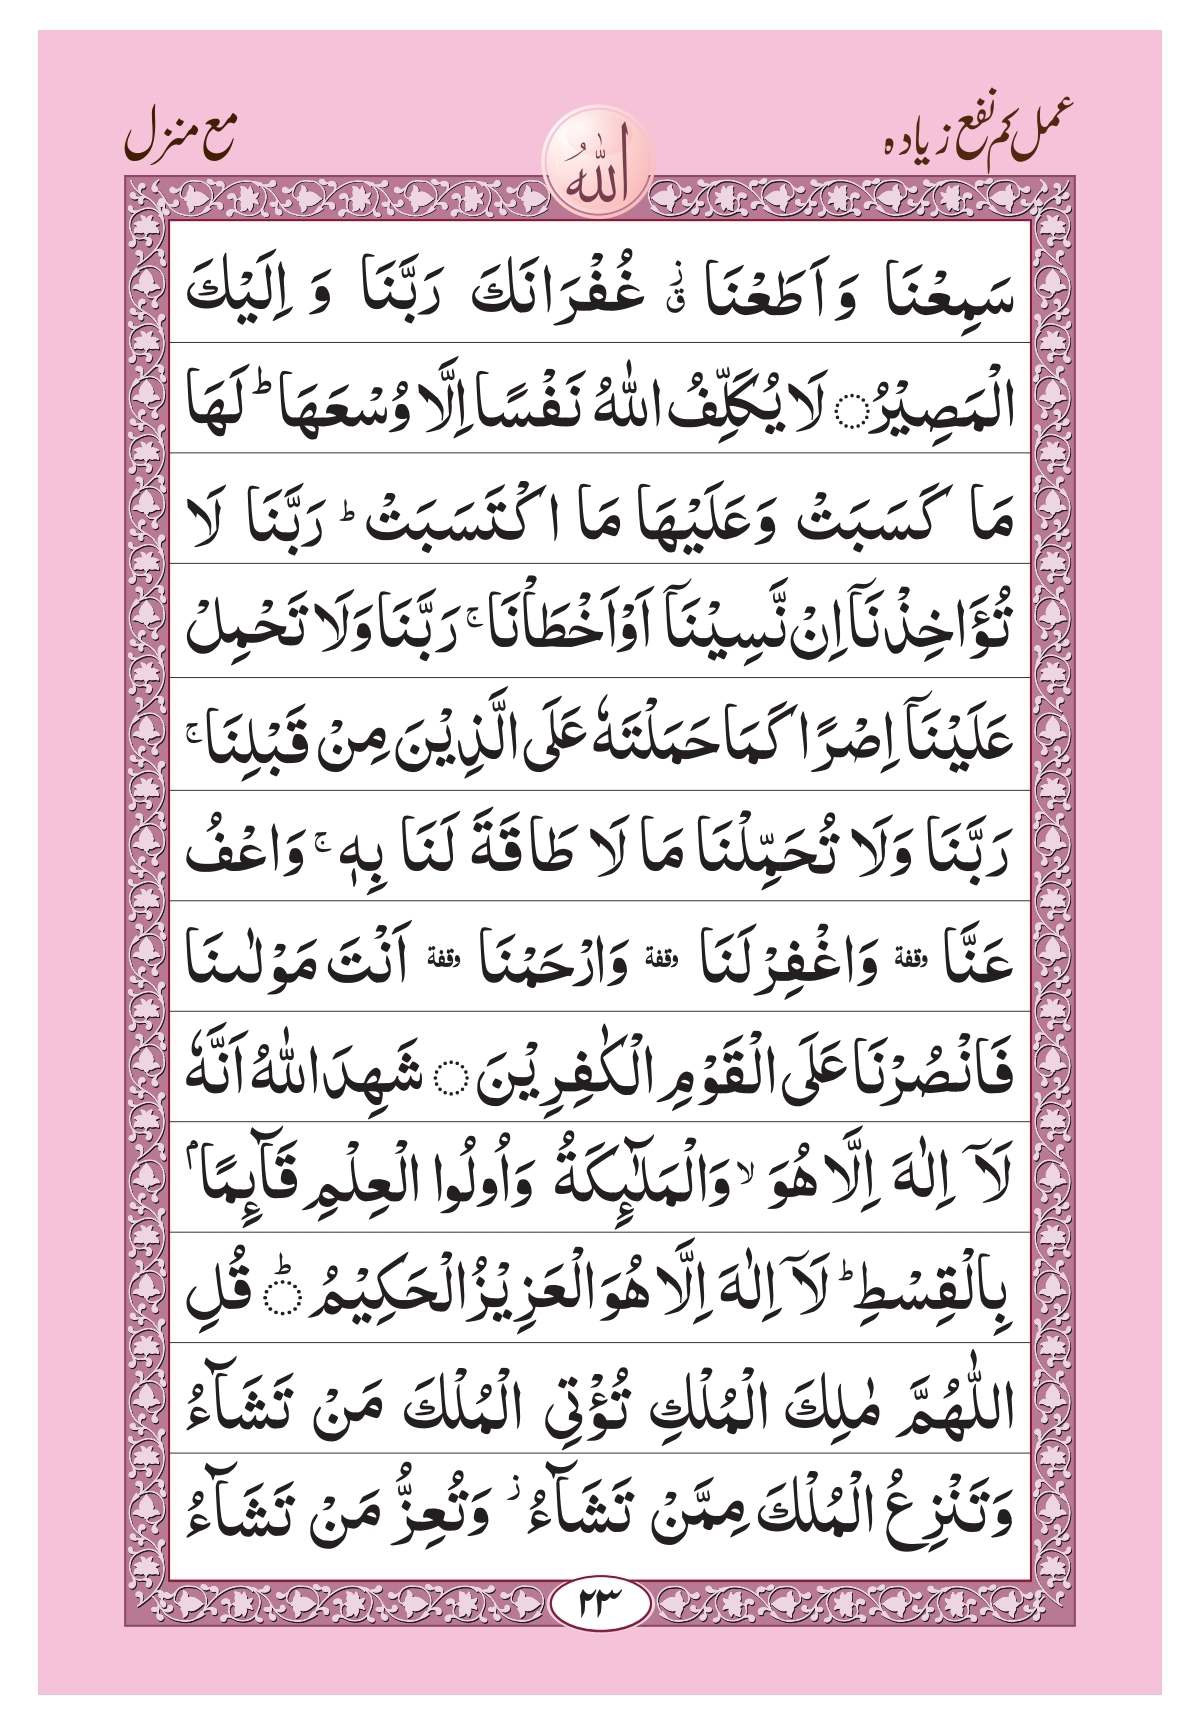 عمل کم نفع زیادہ
مع منزل
الله
سَمِعْنَا وَ اَطَعْنَا ۫ ق غُفْرَانَكَ رَبَّنَا وَ اِلَيْكَ
الْمَصِيْرُ۝ لَا يُكَلِّفُ اللّٰهُ نَفْسًا اِلَّا وُسْعَهَا ؕ لَهَا
مَا كَسَبَتْ وَعَلَيْهَا مَا اكْتَسَبَتْ ؕ رَبَّنَا لَا
تُؤَاخِذْنَاۤ اِنْ نَّسِيْنَاۤ اَوْ اَخْطَاْنَا ۚ رَبَّنَا وَلَا تَحْمِلْ
عَلَيْنَاۤ اِصْرًا كَمَا حَمَلْتَهٗ عَلَى الَّذِيْنَ مِنْ قَبْلِنَا ۚ
رَبَّنَا وَلَا تُحَمِّلْنَا مَا لَا طَاقَةَ لَنَا بِهٖ ۚ وَاعْفُ
عَنَّا وقفة وَاغْفِرْ لَنَا وقفة وَارْحَمْنَا وقفة اَنْتَ مَوْلٰىنَا
فَانْصُرْنَا عَلَى الْقَوْمِ الْكٰفِرِيْنَ ۝ شَهِدَ اللّٰهُ اَنَّهٗ
لَاۤ اِلٰهَ اِلَّا هُوَ ۙ وَالْمَلٰٓئِكَةُ وَاُولُوا الْعِلْمِ قَآئِمًا ۢ
بِالْقِسْطِ ؕ لَاۤ اِلٰهَ اِلَّا هُوَ الْعَزِيْزُ الْحَكِيْمُ ؕ۝ قُلِ
اللّٰهُمَّ مٰلِكَ الْمُلْكِ تُؤْتِی الْمُلْكَ مَنْ تَشَآءُ
وَتَنْزِعُ الْمُلْكَ مِمَّنْ تَشَآءُ ۫ وَتُعِزُّ مَنْ تَشَآءُ
۲۳